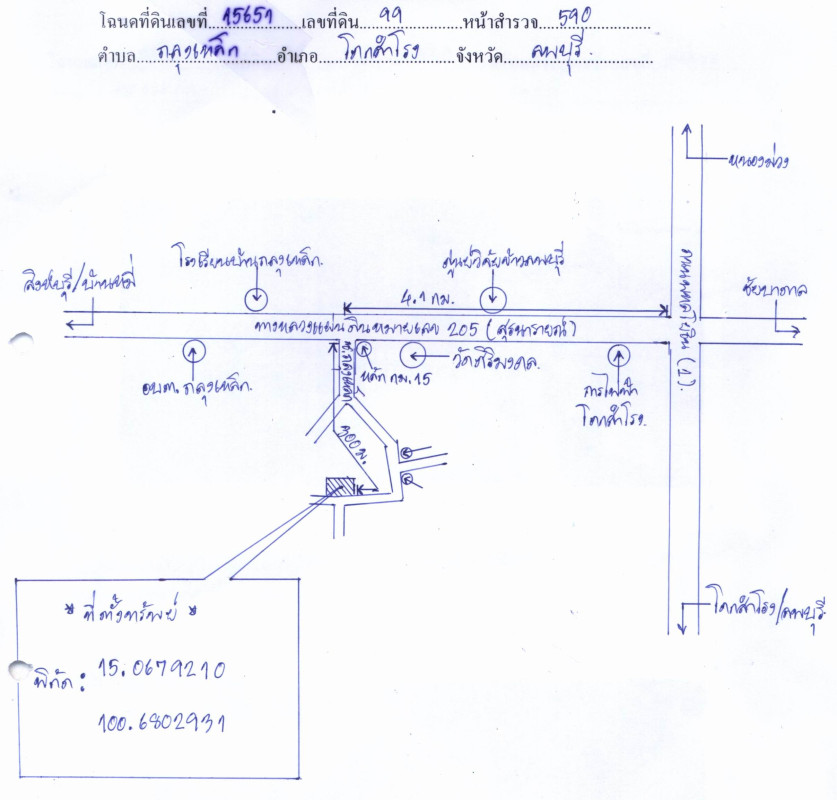 โฉนดที่ดินเลขที่ 15651 เลขที่ดิน 99 หน้าสำรวจ 590
ตำบล ถลุงเหล็ก อำเภอ โคกสำโรง จังหวัด ลพบุรี.
หนองม่วง
โรงเรียนบ้านถลุงเหล็ก.
ศูนย์วิจัยข้าวลพบุรี
สิงห์บุรี/บ้านหมี่
4.1 กม.
ชัยบาดาล
ทางหลวงแผ่นดินหมายเลข 205 (สุรนารายณ์)
ถนนพหลโยธิน (1).
อบต. ถลุงเหล็ก.
หลัก กม. 15
วัดสิริมงคล.
การไฟฟ้า
โคกสำโรง.
300 ม.
โคกสำโรง/ลพบุรี
* ที่ตั้งทรัพย์ *
พิกัด : 15.0679210
100.6802931